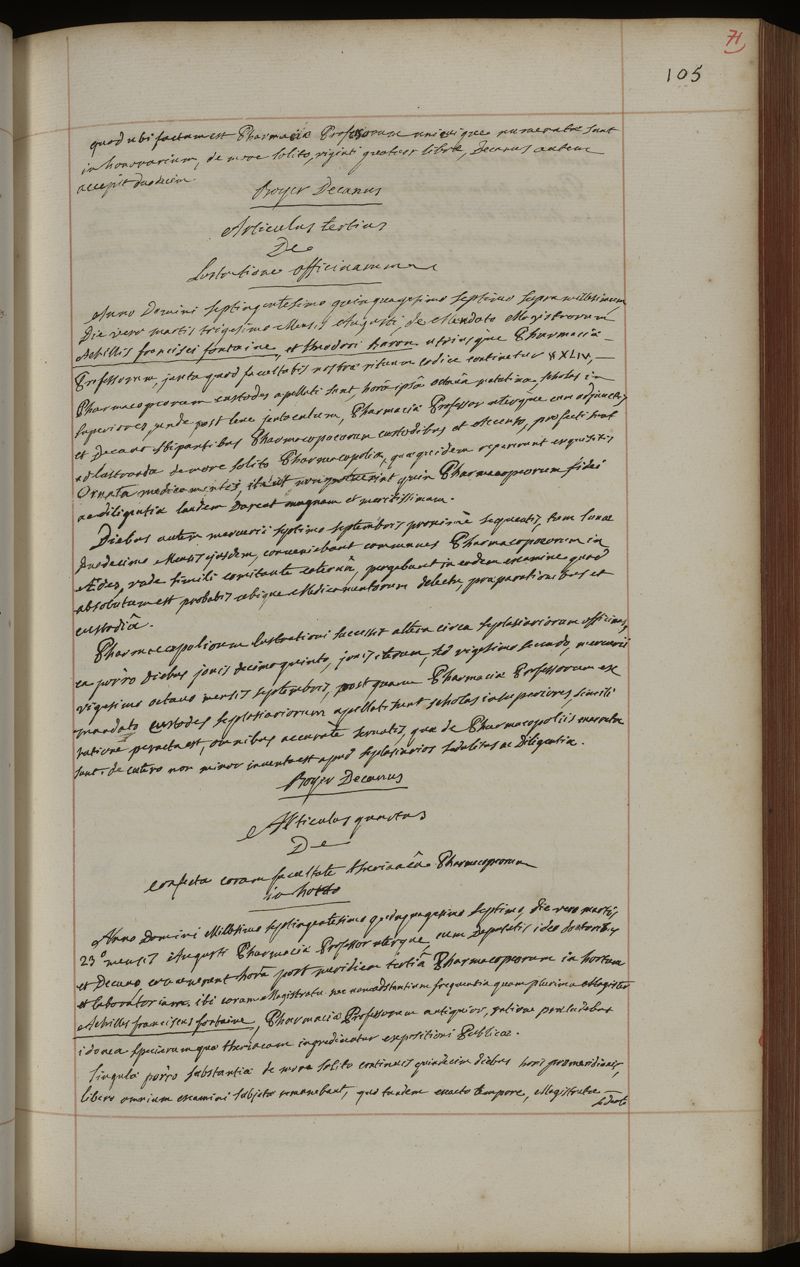 71
105
quod ubi factum est Pharmaciæ Professorum unicuique numeratæ sunt
in honorarium, de more solito, viginti quatuor libræ, Decanus autem
accepit duodecim.
Boyer Decanus
Articulus tertius
De
Lustratione officinarum
Anno Domini septingentesimo quinquagesimo septimo supra millesimum
Die vero martis trigesimo Mensis Augusti, de Mandato Magistrorum
Achillis francisci fontaine, et theodori baron utriusque Pharmaciæ
Professorum, juxta quod facultatis nostræ rituum codice continetur XXLIV,
Pharmacopæorum custodes apellati sunt, horâ ipsâ octavâ matutina, scholas in
superiores, unde post leve jentaculum, Pharmaciæ Professor uterque cum adjunctis
et Decano stipantibus Pharmacopoeorum custodibus et Accenso, profecti sunt
ad lustranda de more solito Pharmacopolia, quæ quidem repererunt exquisitis
Ornata medicamentis, ita ut non potuerint quin Pharmacopæorum fidei
ac diligentiæ laudem darent magnam et meritissimam.
Diebus autem mercurii septimo septembris proximè sequentis, tum lunæ
duodecimo Mensis ejusdem, conveniebant communes Pharmacopoeorum in
Ædes, unde simili comitante catervâ, pergebant in eodem examine quod
absolutum est probatis ubique Medicamentorum delectu, præparationibus et
custodiâ.
Pharmacopoliorum lustrationi successit altera circa seplasiariorum officinas,
ea porro diebus jovis decimo quinto, jovis iterum, vigesimo secundo, mercurii
vigesimo octavo mensis septembris, postquam Pharmaciæ Professorum ex
mandato custodes seplasiariorum apellati sunt scholas in superiores, simili
ratione peracta est, omnibus accuratè servatis, quæ de Pharmacopoliis narrata
sunt. de cætero non minor inventa est apud seplasiarios sedulitas ac Diligentia.
Boyer Decanus
Articulus quartus
De
confecta coram facultate theriacâ Pharmacopæorum
in horto
Anno Domini Millesimo septingentesimo quinquagesimo septimo, die vero martis
23º mensis Augusti Pharmaciæ Professor uterque, cum Deputatis ideo doctoribus
et Decano, convenerunt horâ post meridiem tertiâ Pharmacopæorum in hortum
et laboratorium. ibi coram Magistratu nec non adstantium frequentia quam plurima Magister
Achilles franciscus fontaine, Pharmaciæ Professorum antiquior, præludebat
idonea specierum quæ theriacam ingrediuntur expositioni Publicæ.
singulæ porro substantiæ de more solito continuis quindecim diebus horis promeridianis,
libero omnium examini subjectæ remanebant, quo tandem exacto tempore, Magistratu